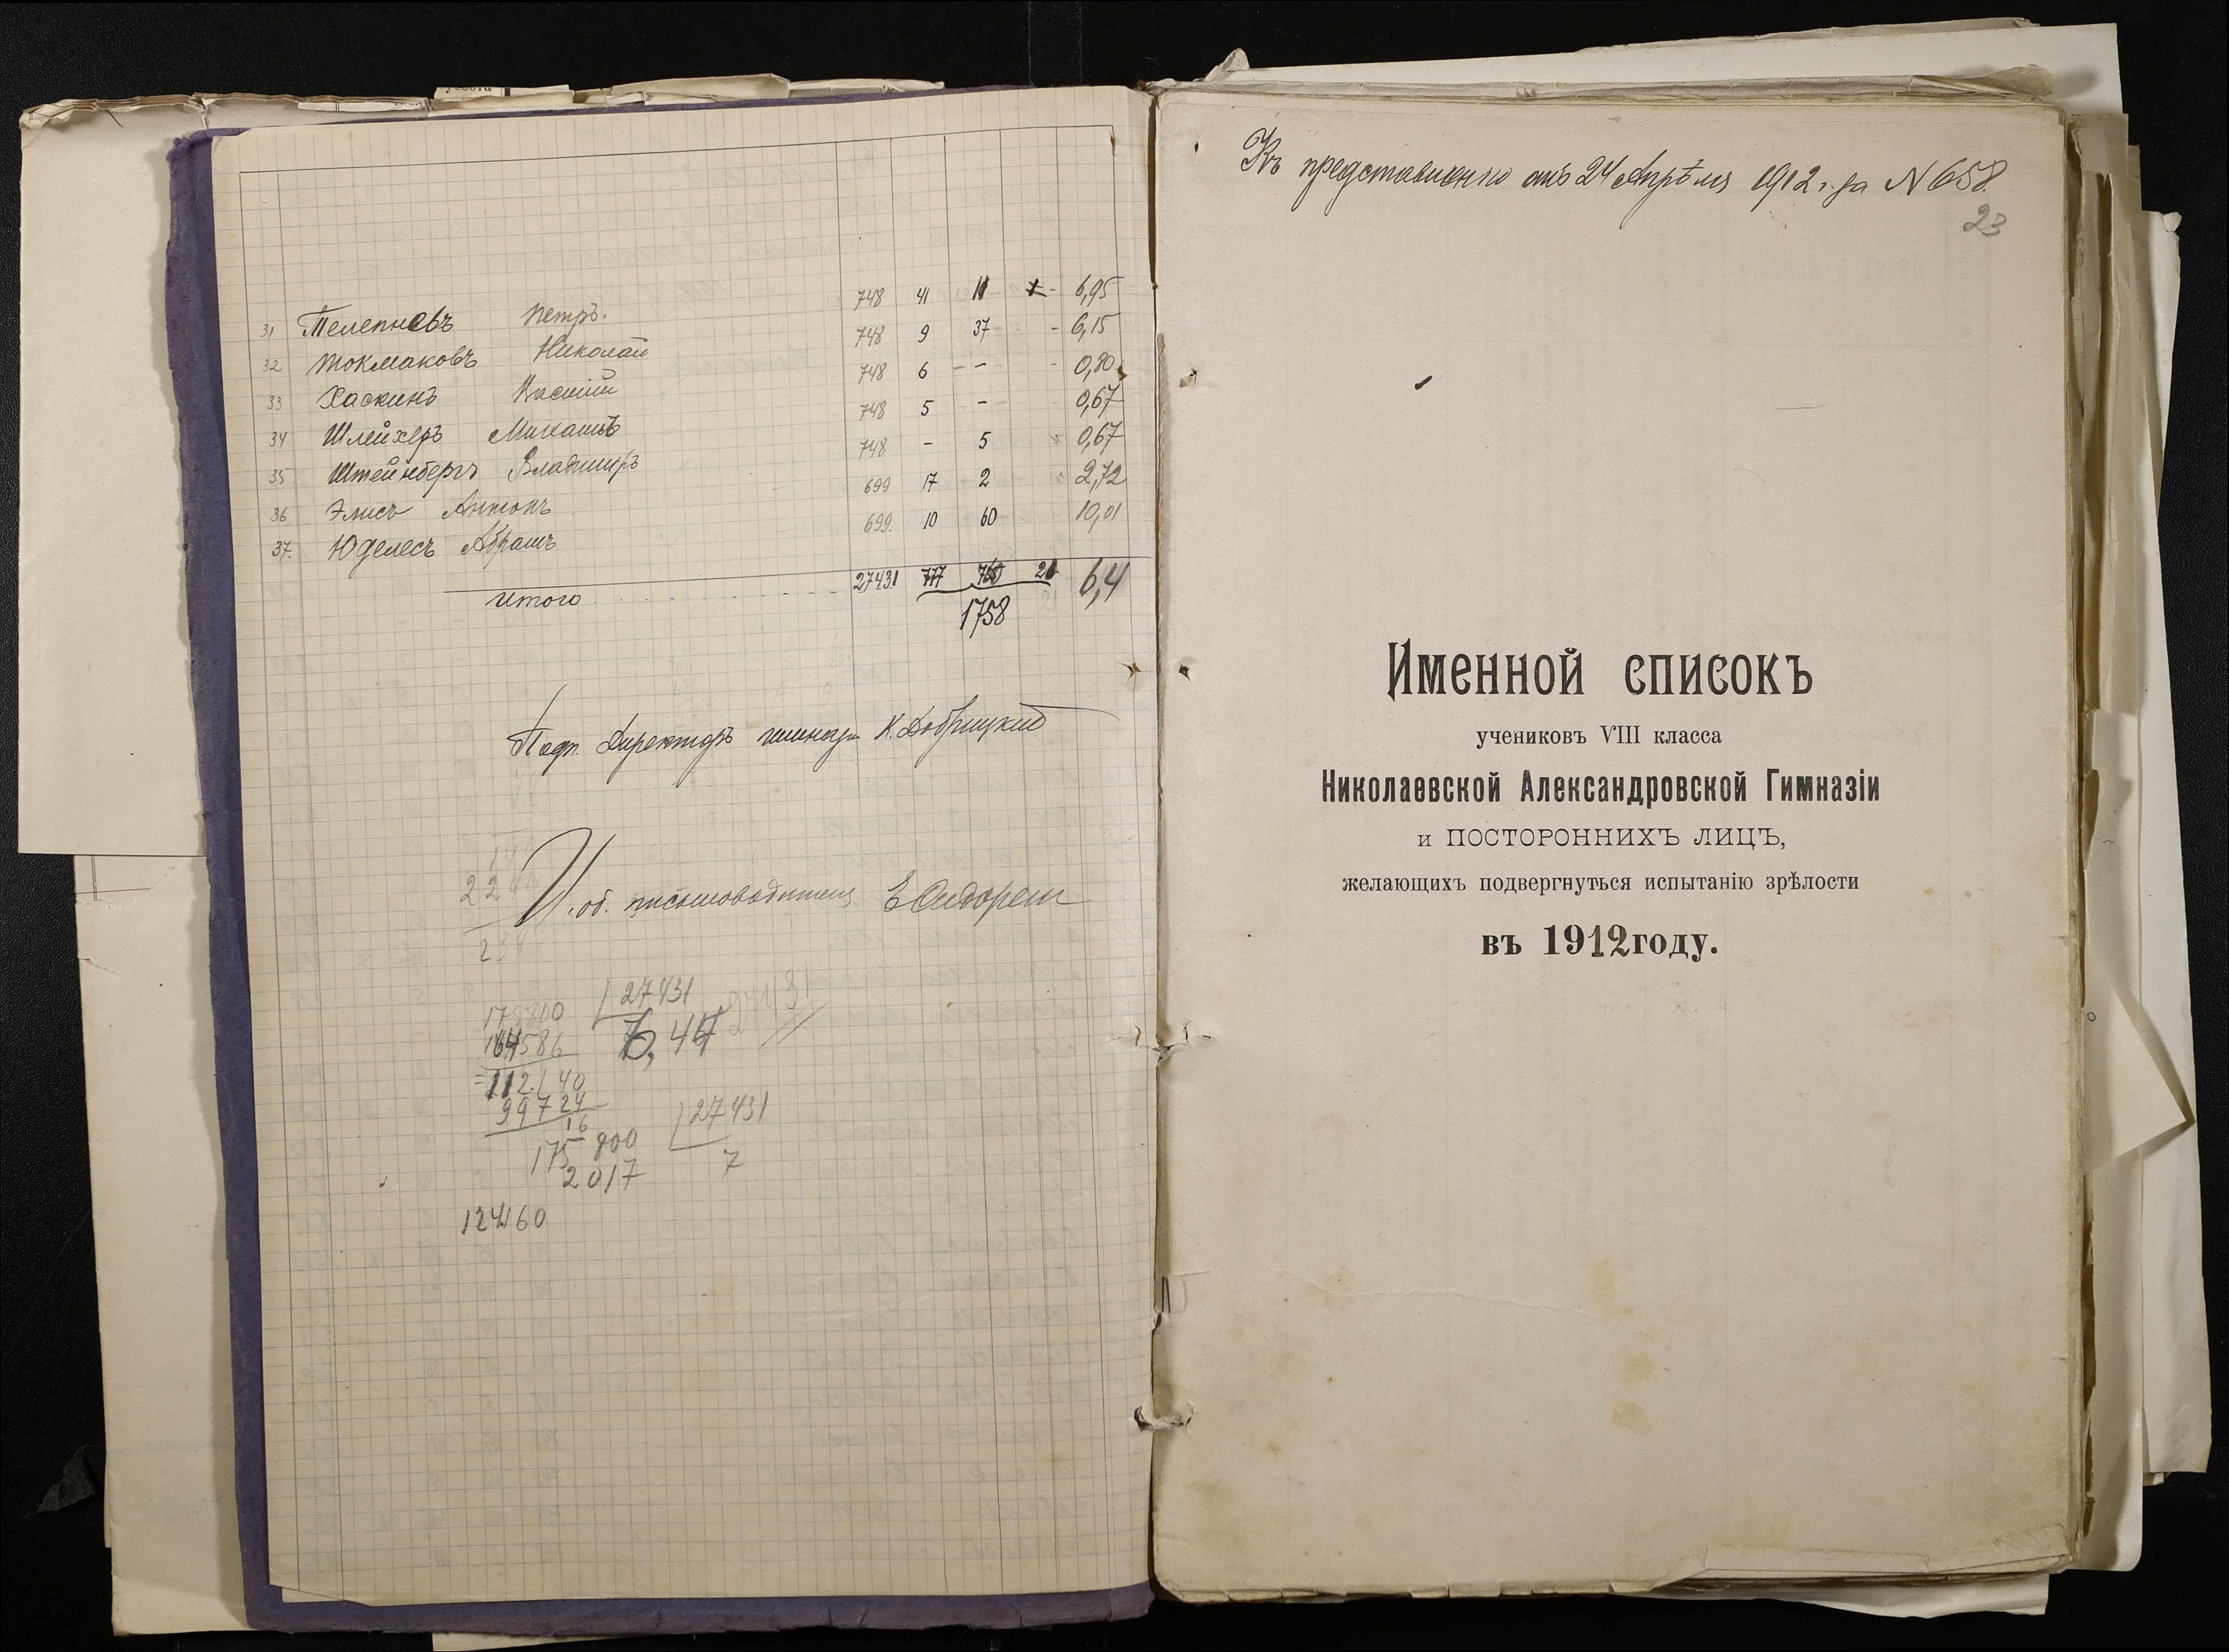 31 Телепневъ Петръ. 748 41 11 1 - 6,95
32 Токмаковъ Николай 748 9 37 - 6,15
33 Хаскинъ Василій 748 6 - - - 0,80
34 Шлейхеръ Михаилъ 748 5 - 0,67
35 Штейнбергъ Владимиръ 748 - 5 0,67
36 Элисъ Антонъ 699 17 2 2,72
37. Юделесъ Абрамъ 699. 10 60 10,01
Итого 27431 777 21 6,4
1758
Подп. Директоръ гимназіи К. Добрицкій
И. об. письмоводителя
27431
27431
7
175800
2017
124160
Къ представленію отъ 24 Апрѣля 1912 г. за N 658.
23
Именной списокъ
учениковъ VIII класса
Николаевской Александровской Гимназіи
и ПОСТОРОННИХЪ ЛИЦЪ,
желающихъ подвергнуться испытанію зрѣлости
въ 1912 году.